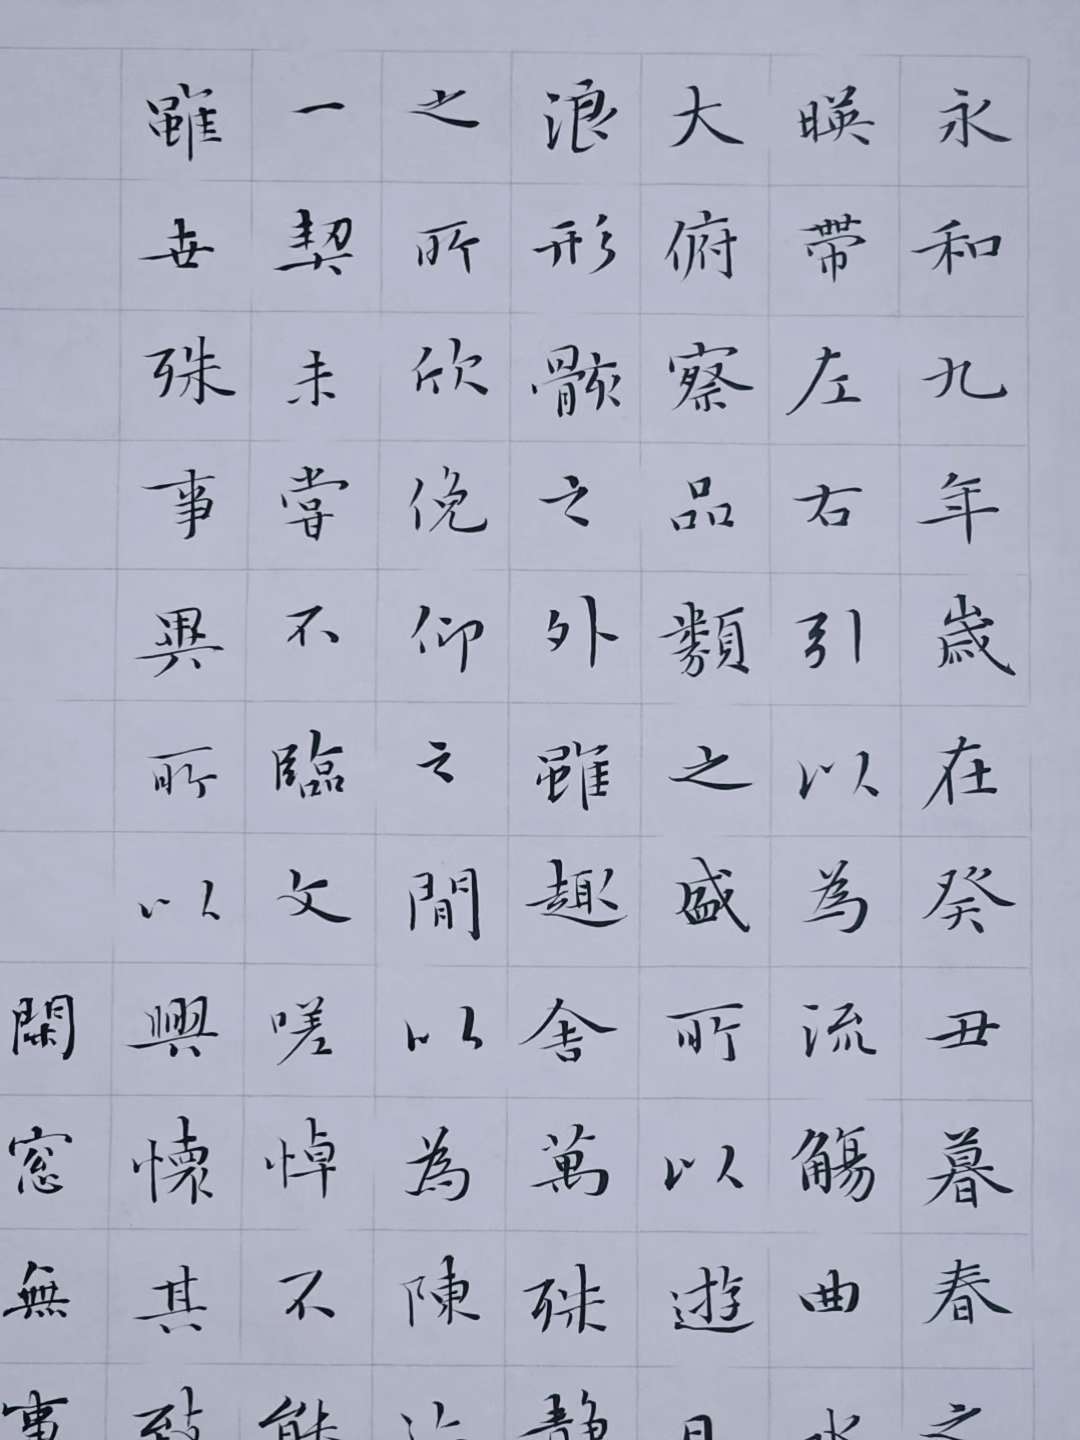 永和九年歲在癸丑暮春之
暎帶左右引以為流觴曲水
大俯察品類之盛所以遊目
浪形骸之外雖趣舍萬殊静
之所欣俛仰之閒以為陳迹
一契未嘗不臨文嗟悼不能
雖世殊事異所以興懷其致
閑窓無事